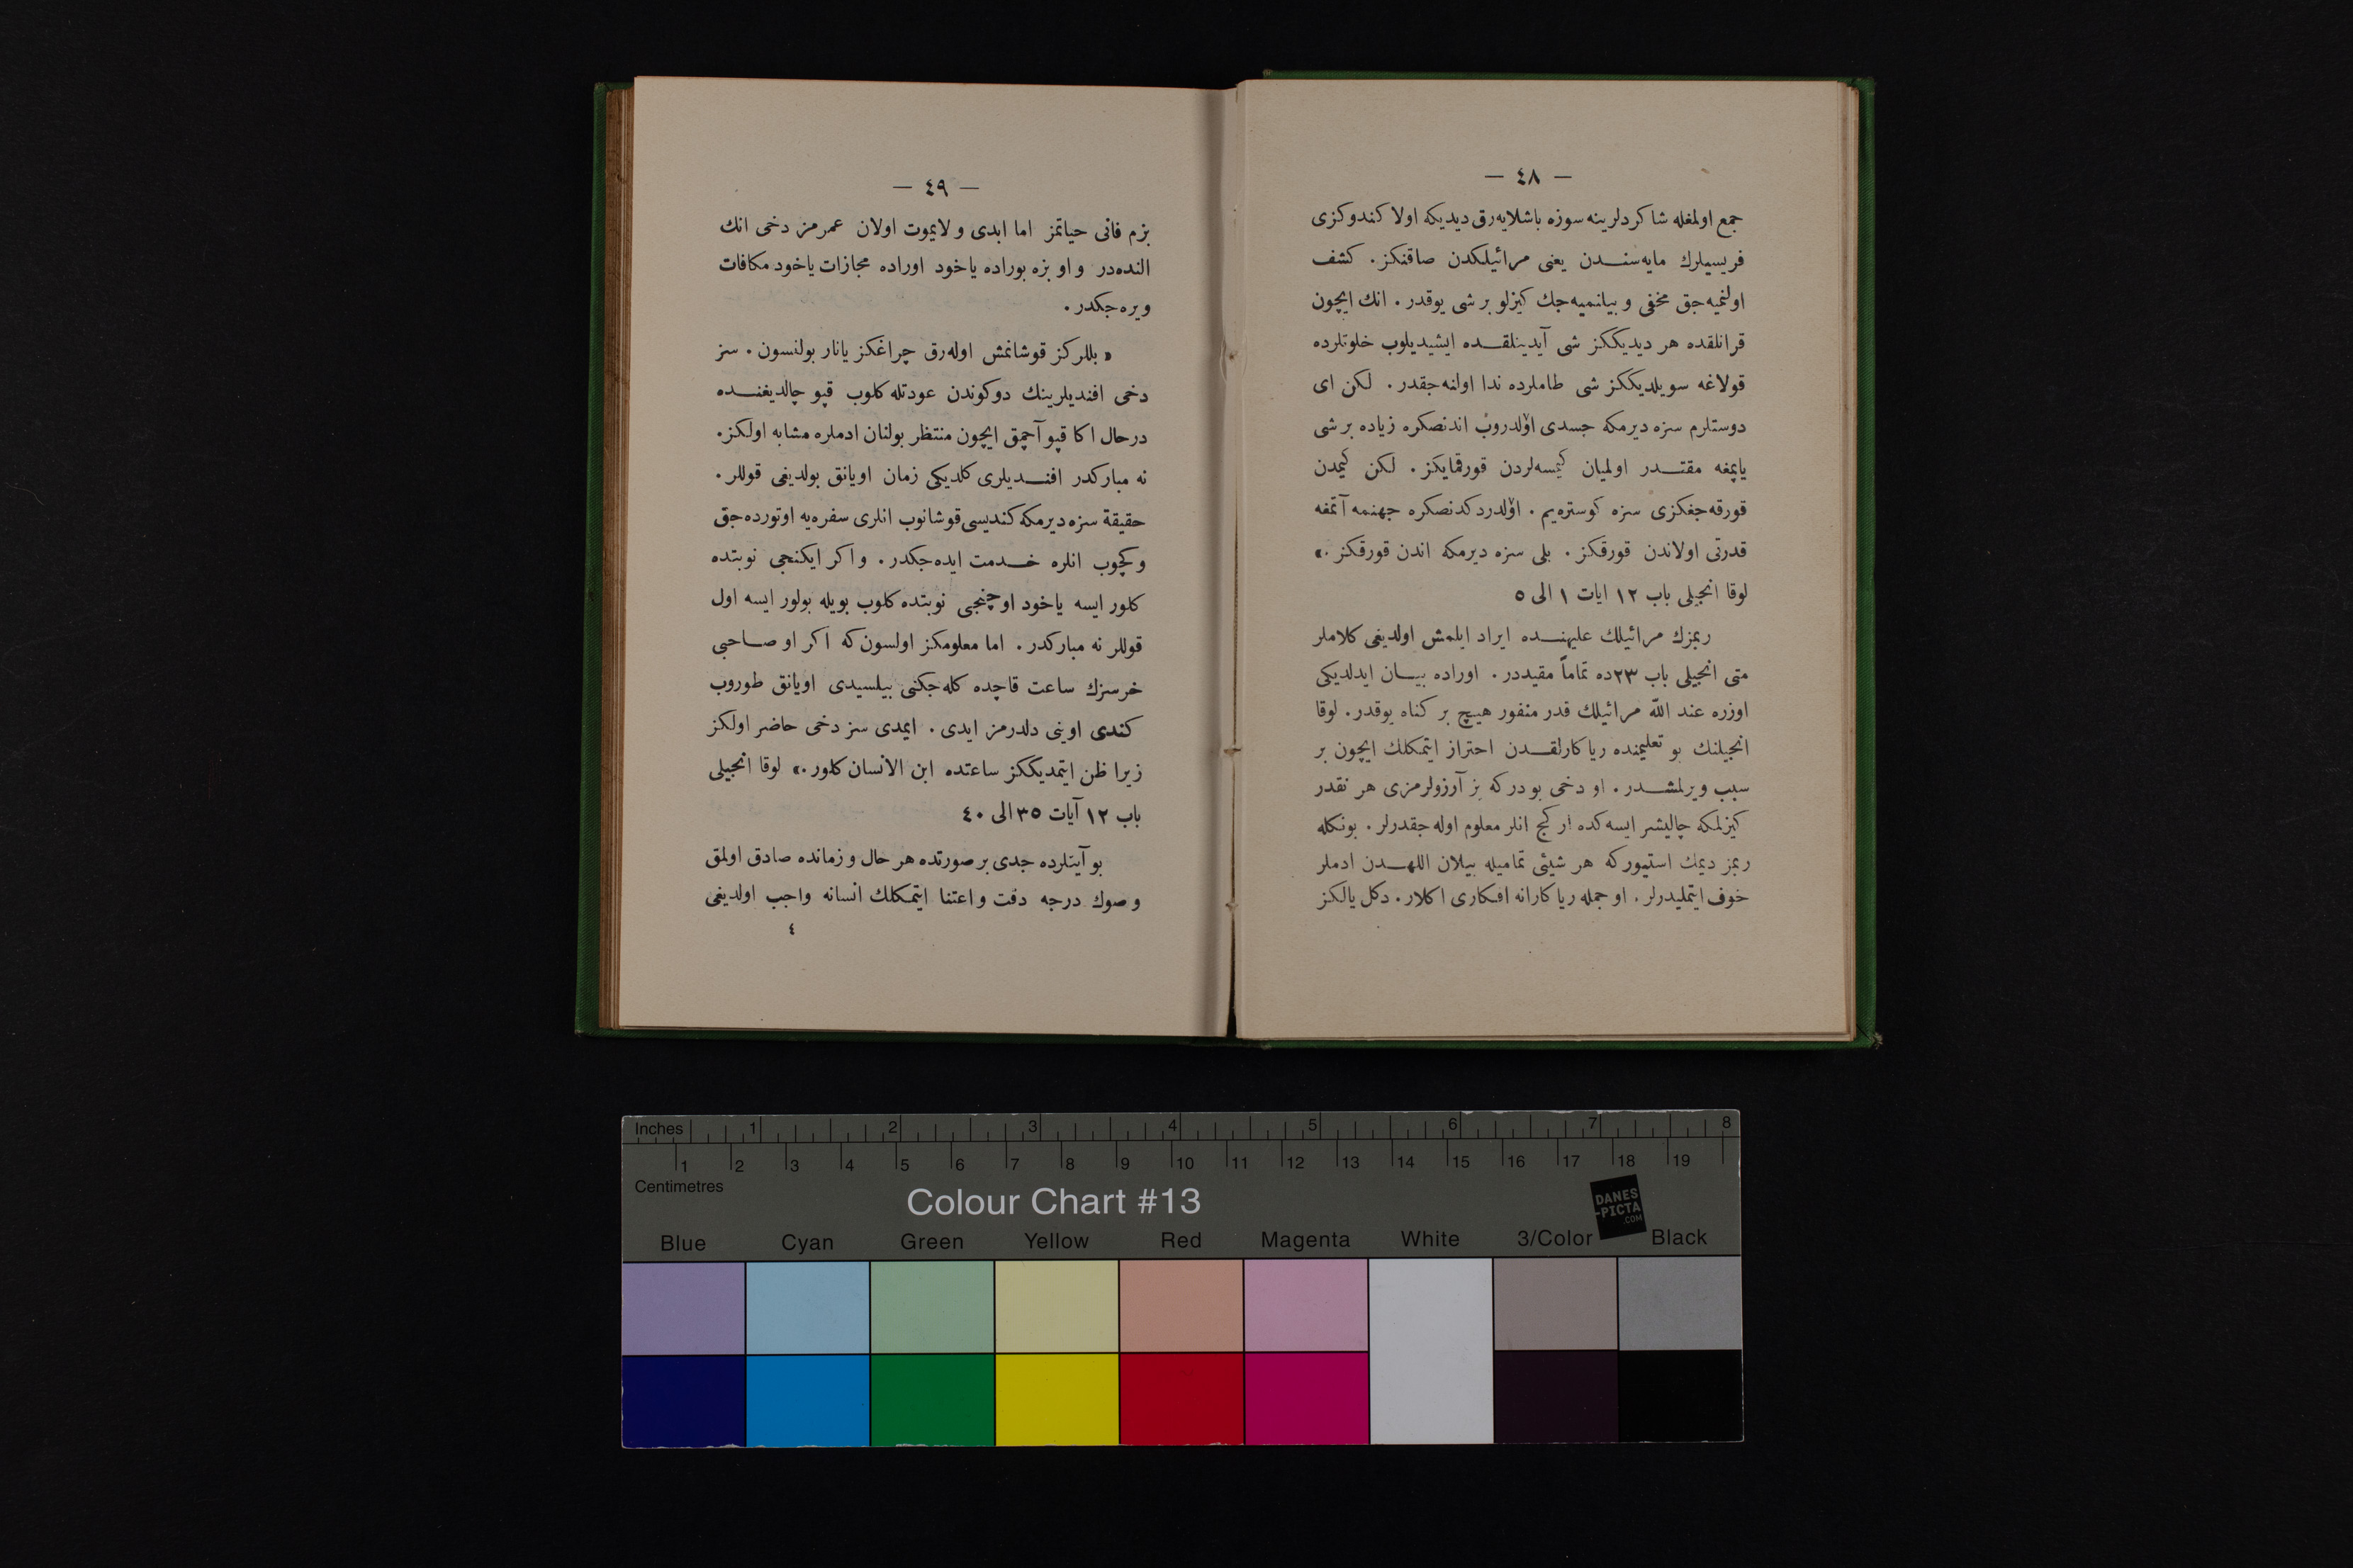 — ٤٨ —
جمع اولمغله شاكردلرینه سوزه باشلایه‌رق دیدیكه اولا كندوكزی
فریسیلرك مایه‌سندن یعنی مرائیلكدن صاقنكز . كشف
اولنمیه‌جق مخفی و بیانمیه‌جك كیزلو بر شی یوقدر . انك ایچون
قراكلقده هر دیدیككز شی آیدینلقده ایشیدیلوب خلوتلرده
قولاغه سویلدیككز شی طاملرده ندا اولنه‌جقدر . لكن ای
دوستلرم سزه دیرمكه جسدی اولدروب اندنصكره زیاده بر شی
یاپمغه مقتدر اولمیان كیمسه‌لردن قورقمایكز . لكن كیمدن
قورقه‌جغكزی سزه كوستره‌یم . اولدردكدنصكره جهنمه آتمغه
قدرتی اولاندن قورقكز . بلی سزه دیرمكه اندن قورقكز .»
لوقا انجیلی باب ١٢ ایات ١ الی ٥
ربمزك مرائیلك علیهنده ایراد ایلمش اولدیغی كلاملر
متی انجیلی باب ٢٣ده تماماً مقیددر . اوراده بیان ایدلدیكی
اوزره عند اللّه مرائیلك قدر منفور هیچ بر كناه یوقدر . لوقا
انجیلنك بو تعلیمنده ریاكارلقدن احتراز ایتمكلك ایچون بر
سبب ویرلمشدر . او دخی بودر كه بز آرزولرمزی هر نقدر
كیزلمكه چالیشر ایسه‌كده ار كج انلر معلوم اوله‌جقدرلر . بونكله
ربمز دیمك استیور كه هر شیئی تمامیله بیلان اللهدن ادملر
خوف ایتملیدرلر . او جمله ریاكارانه افكاری اكلار . دكل یالكز
— ٤٩ —
بزم فانی حیاتمز اما ابدی و لایموت اولان عمرمز دخی انك
النده‌در و او بزه بوراده یاخود اوراده مجازات یاخود مكافات
ویره‌جكدر .
« بللركز قوشانمش اوله‌رق چراغكز یانار بولنسون . سز
دخی افندیلرینك دوكوندن عودتله كلوب قپو چالدیغنده
درحال اكا قپو آچمق ایچون منتظر بولنان ادملره مشابه اولكز .
نه مباركدر افندیلری كلدیكی زمان اویانق بولدیغی قوللر .
حقیقة سزه دیرمكه كندیسی قوشانوب انلری سفره‌یه اوتورده‌جق
و كچوب انلره خدمت ایده‌جكدر . و اكر ایكنجی نوبتده
كلور ایسه یاخود اوچنجی نوبتده كلوب بویله بولور ایسه اول
قوللر نه مباركدر . اما معلومكز اولسون كه اكر او صاحبی
خرسزك ساعت قاچده كله‌جكنی بیلسیدی اویانق طوروب
كندی اوینی دلدرمز ایدی . ایمدی سز دخی حاضر اولكز
زیرا ظن ایتمدیككز ساعتده ابن الانسان كلور .» لوقا انجیلی
باب ١٢ آیات ٣٥ الی ٤٠
بو آیتلرده جدی بر صورتده هر حال و زمانده صادق اولمق
و صوك درجه دقت و اعتنا ایتمكلك انسانه واجب اولدیغی
٤
Inches 1 2 3 4 5 6 7 8
1 2 3 4 5 6 7 8 9 10 11 12 13 14 15 16 17 18 19
Centimetres
Colour Chart #13
DANES
-PICTA
.COM
Blue Cyan Green Yellow Red Magenta White 3/Color Black